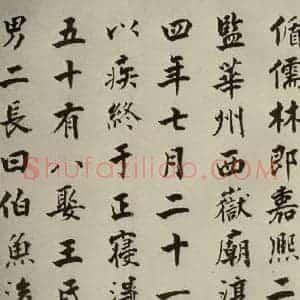 循儒林郎嘉熙二
監華州西嶽廟淳
四年七月二十一
以疾終于正寢
五十有八娶王氏
男二長曰伯魚
Shufaziliao.com